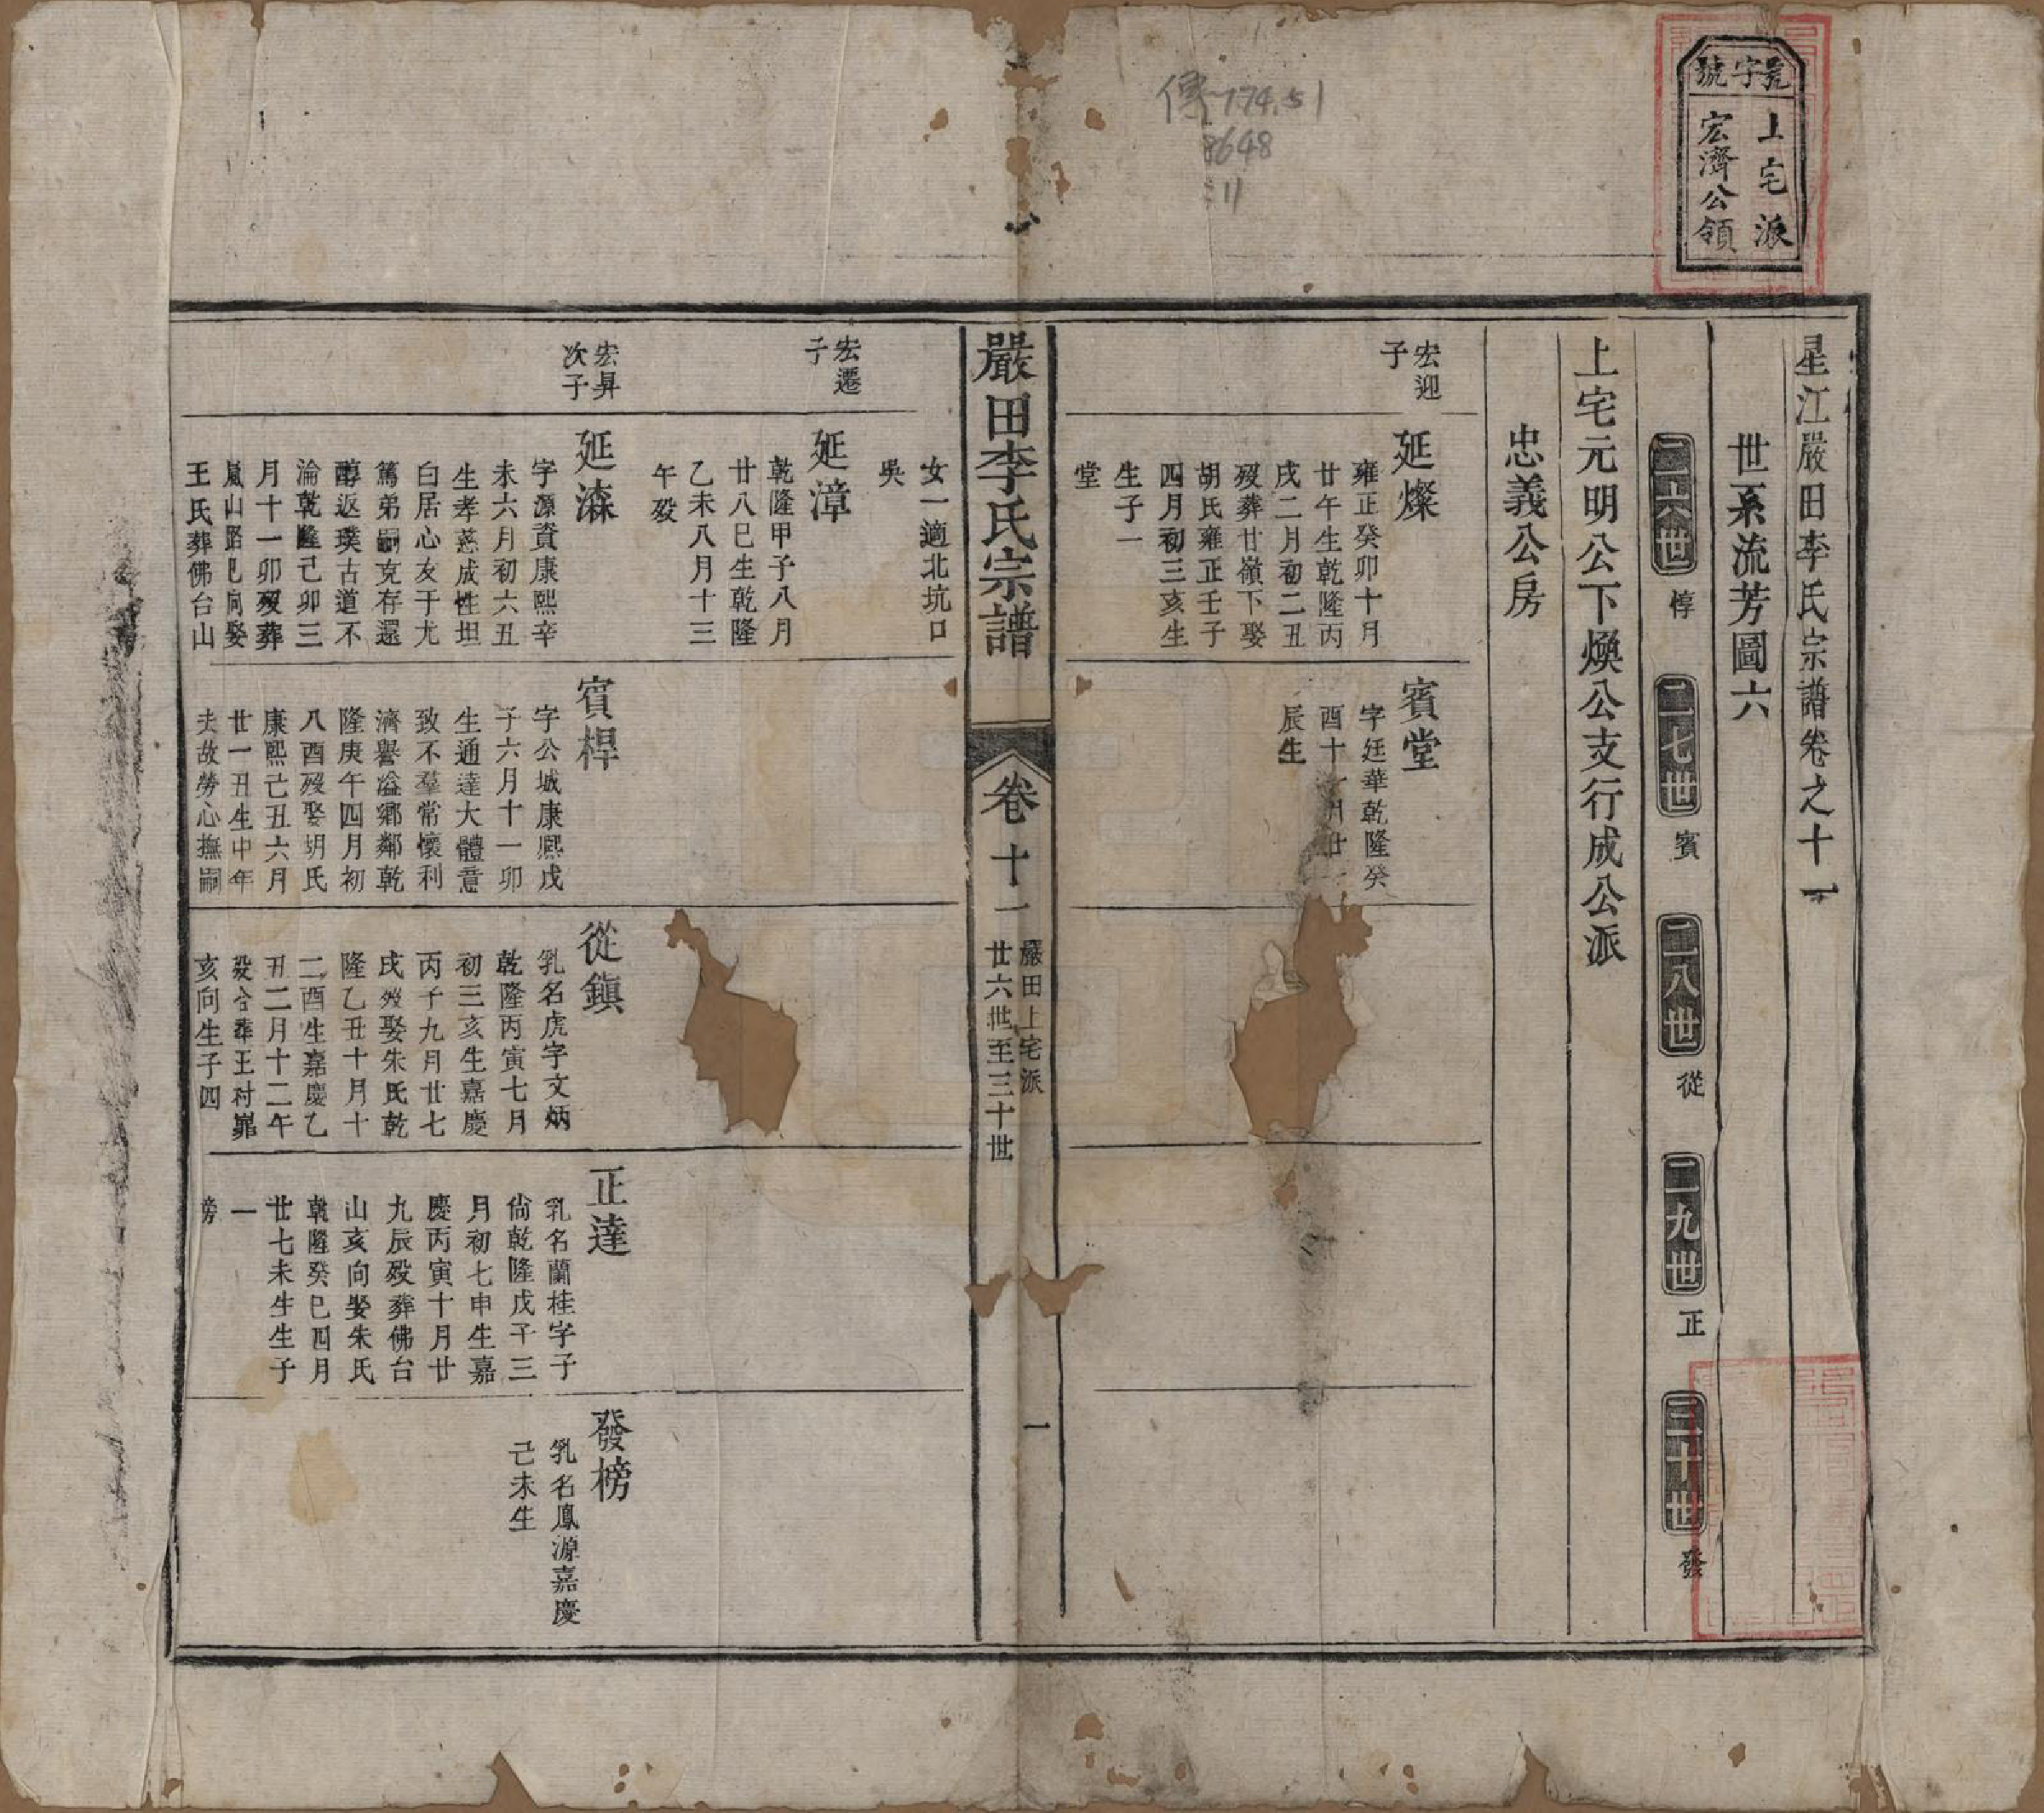 號字號
上宅派
宏濟公領
傳
774.51
8648
11
星江嚴田李氏宗譜卷之十一
世系流芳圖六
二六世 惇 二七世 賓 二八世 從 二九世 正 三十世 發
上宅元明公下煥公支行成公派
忠義公房
宏迎
子
延燦
雍正癸卯十月
廿午生乾隆丙
戌二月初二丑
歿葬廿嶺下娶
胡氏雍正壬子
四月初三亥生
生子一
堂
賓堂
字廷華乾隆癸
酉十一月廿一
辰生
嚴田李氏宗譜
卷十一
嚴田上宅派
廿六世至三十世
一
女一適北坑口
吳
宏遷
子
延漳
乾隆甲子八月
廿八巳生乾隆
乙未八月十三
午歿
宏昇
次子
延漋
字源資康熙辛
未六月初六丑
生孝慈成性坦
白居心友于尤
篤弟嗣克存還
醇返璞古道不
淪乾隆己卯三
月十一卯歿葬
嵐山路巳向娶
王氏葬佛台山
賓桿
字公城康熙戊
子六月十一卯
生通達大體意
致不羣常懷利
濟譽溢鄉鄰乾
隆庚午四月初
八酉歿娶胡氏
康熙己丑六月
廿一丑生中年
夫故勞心撫嗣
從鎮
乳名虎字文炳
乾隆丙寅七月
初三亥生嘉慶
丙子九月廿七
戌歿娶朱氏乾
隆乙丑十月十
二酉生嘉慶乙
丑二月十二午
歿合葬王村
亥向生子四
正達
乳名蘭桂字子
尙乾隆戊子三
月初七申生嘉
慶丙寅十月廿
九辰歿葬佛台
山亥向娶朱氏
乾隆癸巳四月
廿七未生生子
一
榜
發榜
乳名鳳源嘉慶
己未生